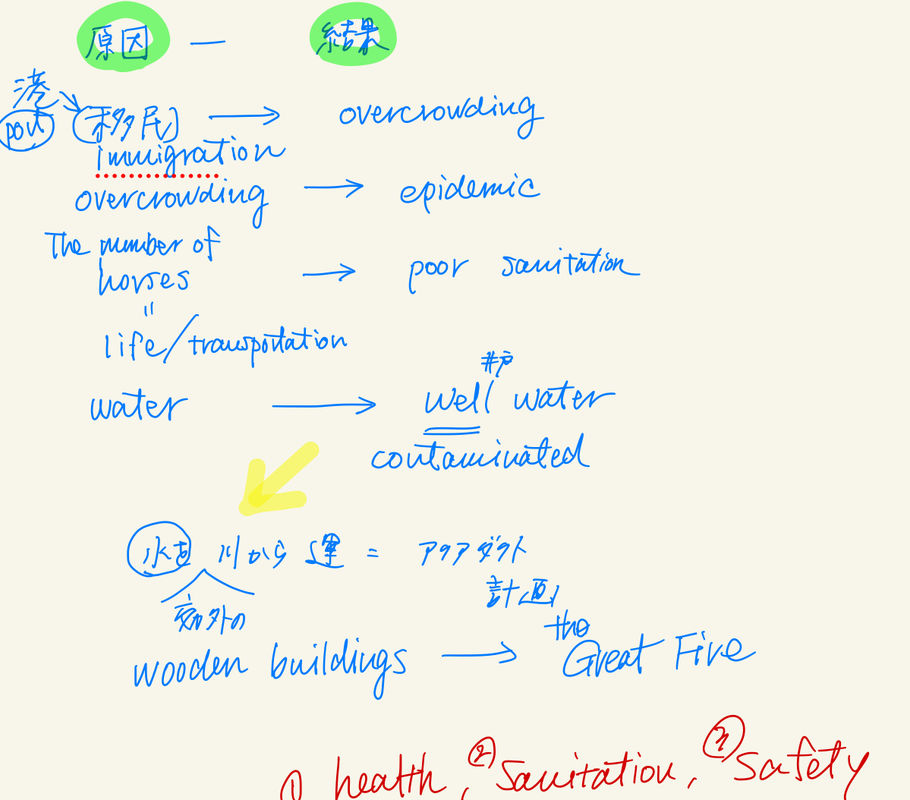 原因 — 結果
港
port (移民) → overcrowding
immigration
overcrowding → epidemic
The number of
horses → poor sanitation
〃
life/transportation
井戸
water → well water
contaminated
水を 川から 運 = アクアダクト
郊外の 計画
the
wooden buildings → Great Fire
① health, ② sanitation, ③ safety